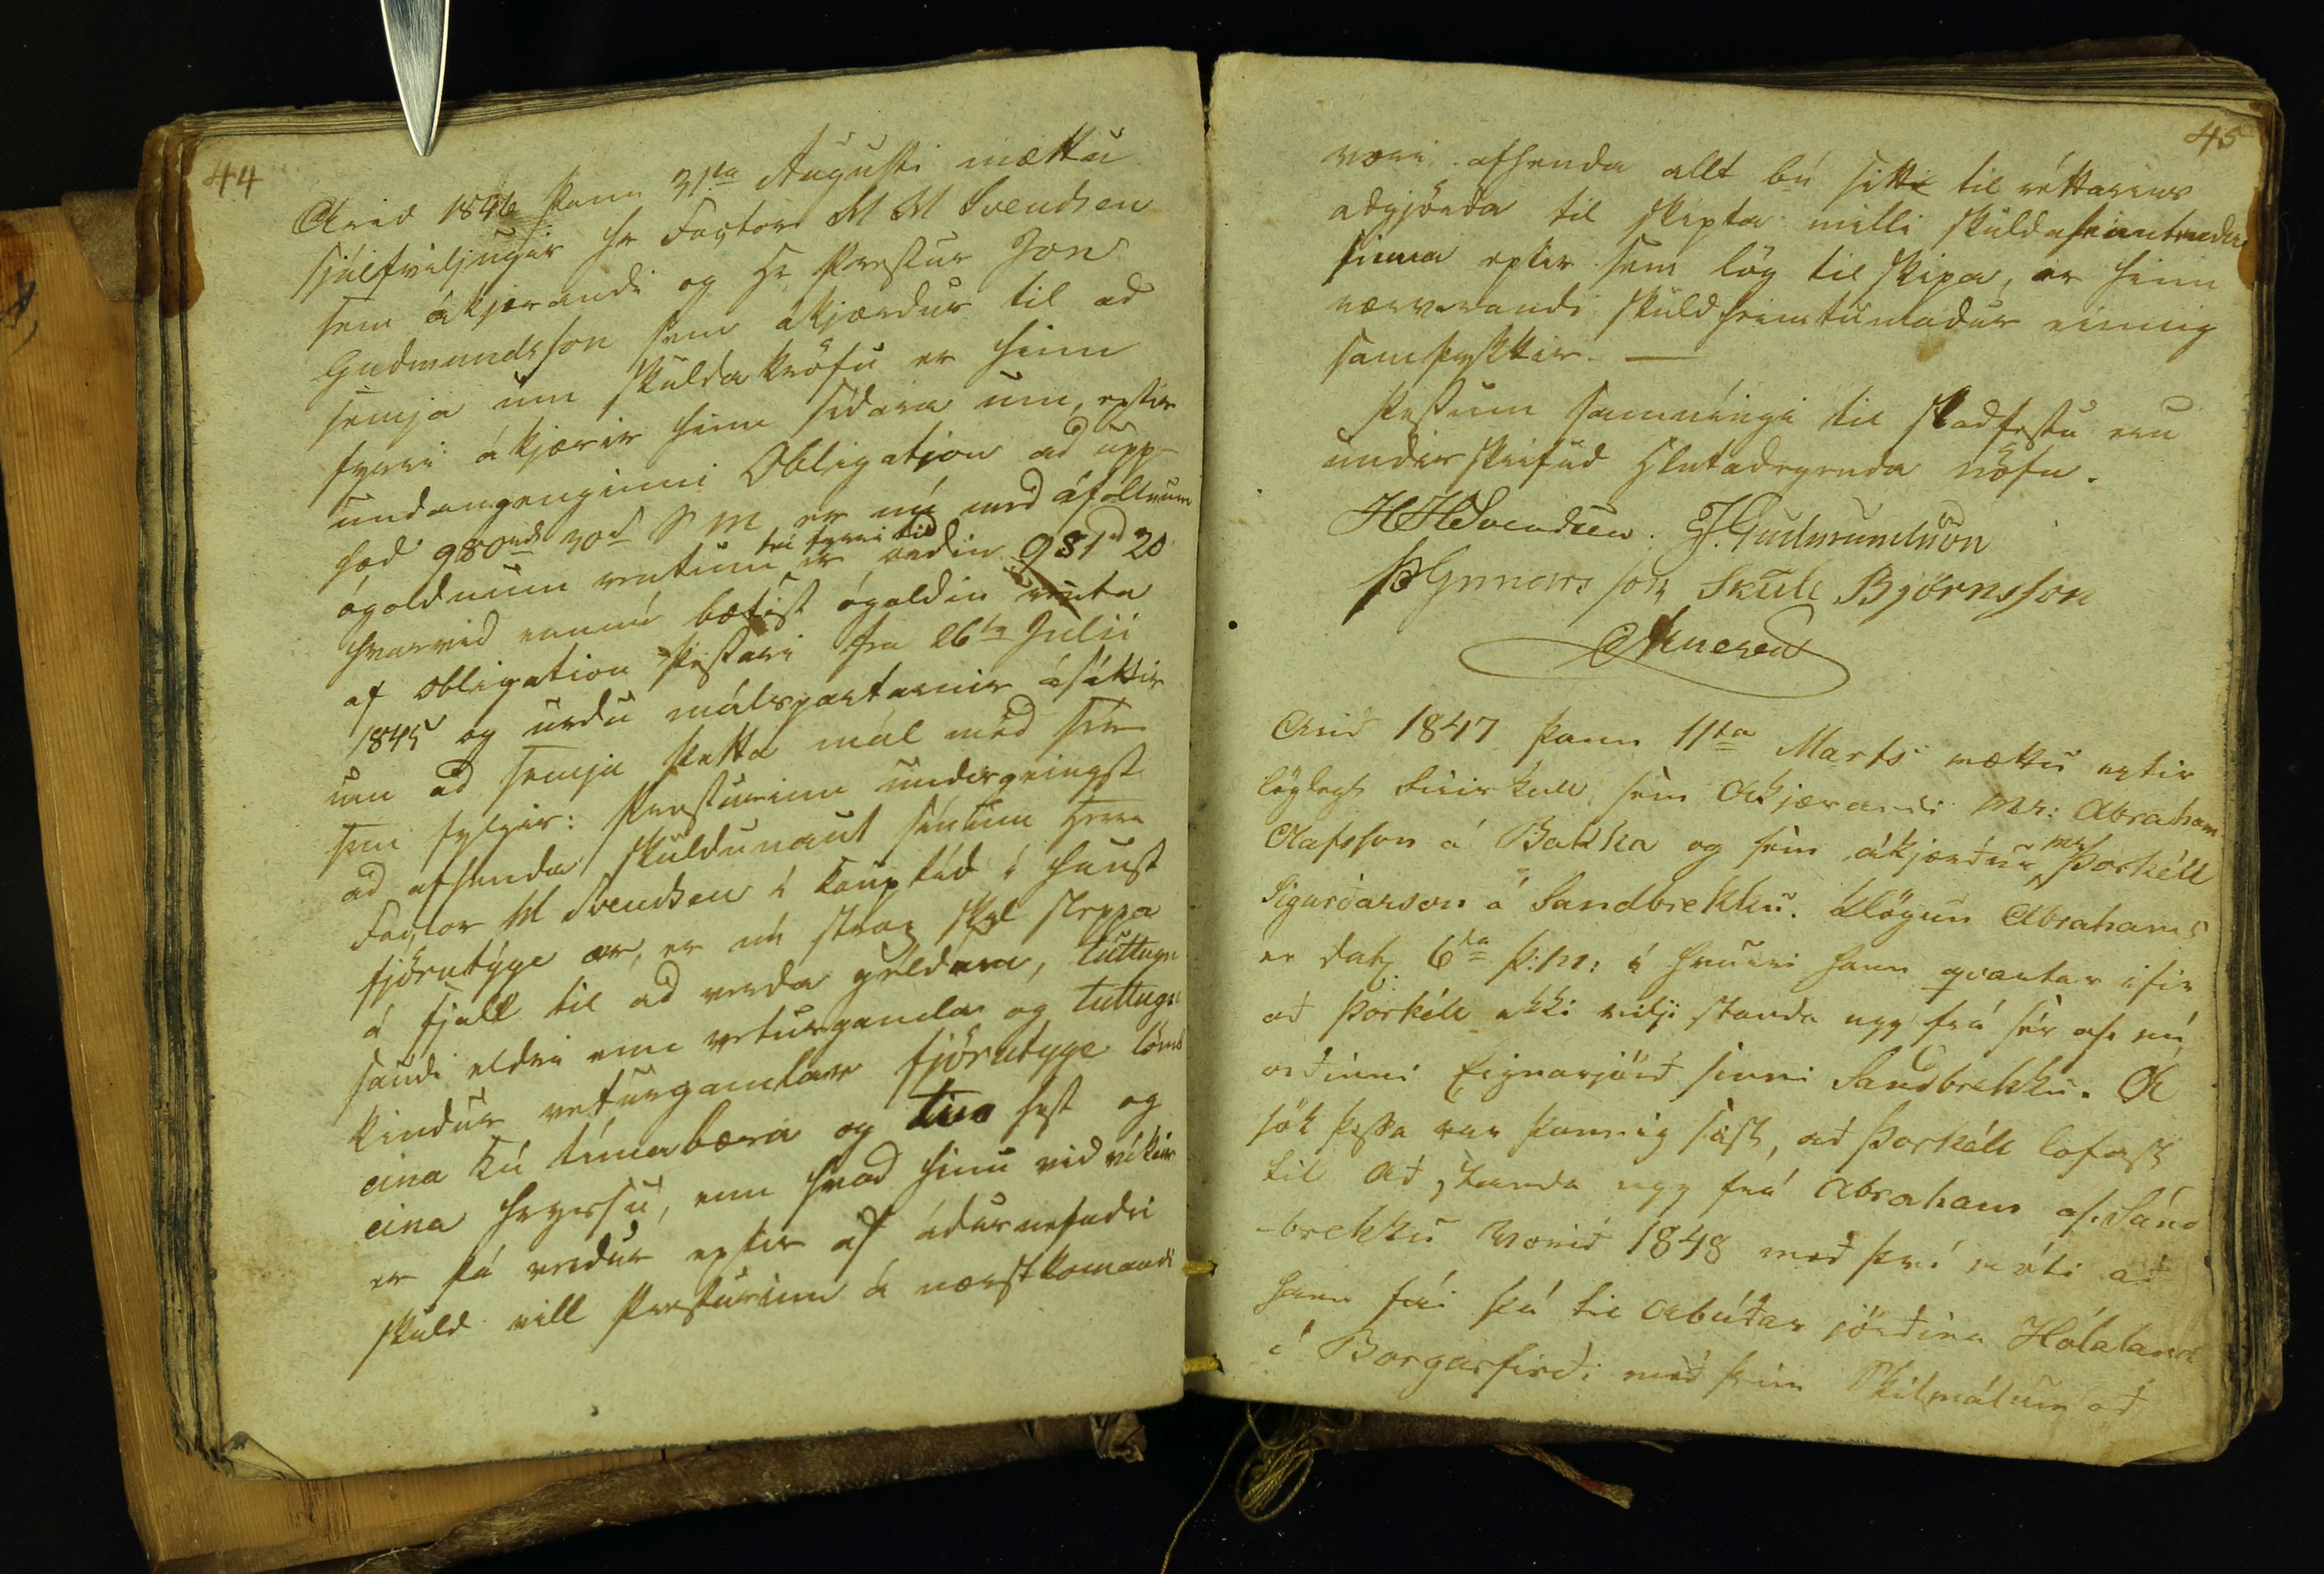 44
Arid 1846 þann 31ta Augusti mættu
sjálfviljugir hr Factor M M Svendsen
sem ákjærandi og Hr Prestur Jon
Gudmundsson sem ákjærdur til ad
semja um skuldakröfu er hinn
fyrri ákjærir hinn sídara um, eptir
undangenginni Obligation ad upp-
hæd 980rd 70s S M er nú med áföllnum
ógoldnum rentum til fyrri tid er ordin 981rd 20
hvarvid ennú bætist ógoldin renta
af Obligation þessari fra 26ta Julii
1845 og urdu málspartarnir ásáttir
um ad semja þetta mál med sér
sem fylgir: Presturinn undirgeingst
ad afhenda skuldunaut sínum Herra
Factor M Svendsen í kauptíd í haust
fjörutýge ær, er nú strax skal sleppa
á fjall til ad verda geldar, tuttugu
saudi eldri enn veturgamla og tuttugu
kindur veturgamlar fjörutyge lömb
eina kú tímabæra og tvo hest og
eina hryssu, enn hvad hinu vid víkur
er þá verdur eptir af ádurnefndri
skuld vill Presturinn á næstkomandi
45
vori afhenda allt bú sitt til réttarins
adgjörda til skipta milli skuldaheimtenda
sinna eptir sem lög til skipa, er hinn
nærverandi skuldheimtumadur einnig
samþykkir. —
Þessum samníngi til stadfestu eru
undirskrifud hlutadegenda nöfn.
MMSvendsen. J. Gudmundsson
ÞGunnarsson Skuli Björnsson
Arid 1847 þann 11ta Marts mættu eptir
löglegt sem Akjærandi Mr: Abraham
Olafsson á Bakka og sem ákjærdur mr Þorkéll
Sigurðarson á Sandbrekku. Klögun Abrahams
er dat: 6ta þ:m: í hvurri hann qvartar ifir
að Þorkéll ekki vilji standa upp frá sér af nú
orðinni Eignarjörð sinni Sandbrekku. Ok
sök þessa var þannig sæst, að Þorkéll lofast
til að standa upp frá Abraham af Sand
-brekku Vorið 1848 með því móti að
hann fái þá til Abúðar jörðina Hólaland
í Borgarfirði með þeim Skilmálum að